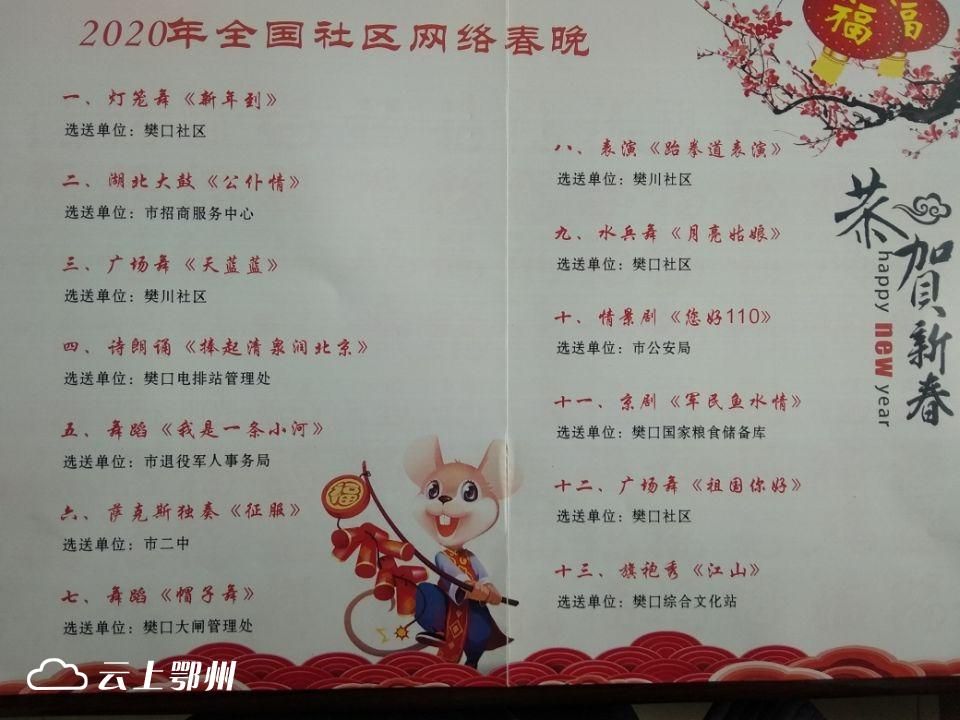 2020年全国社区网络春晚
一、灯笼舞《新年到》
选送单位：樊口社区
二、湖北大鼓《公仆情》
选送单位：市招商服务中心
三、广场舞《天蓝蓝》
选送单位：樊川社区
四、诗朗诵《捧起清泉润北京》
选送单位：樊口电排站管理处
五、舞蹈《我是一条小河》
选送单位：市退役军人事务局
六、萨克斯独奏《征服》
选送单位：市二中
七、舞蹈《帽子舞》
选送单位：樊口大闸管理处
八、表演《跆拳道表演》
选送单位：樊川社区
九、水兵舞《月亮姑娘》
选送单位：樊口社区
十、情景剧《您好110》
选送单位：市公安局
十一、京剧《军民鱼水情》
选送单位：樊口国家粮食储备库
十二、广场舞《祖国你好》
选送单位：樊口社区
十三、旗袍秀《江山》
选送单位：樊口综合文化站
福
福
恭贺新春
happy new year
福
云上鄂州